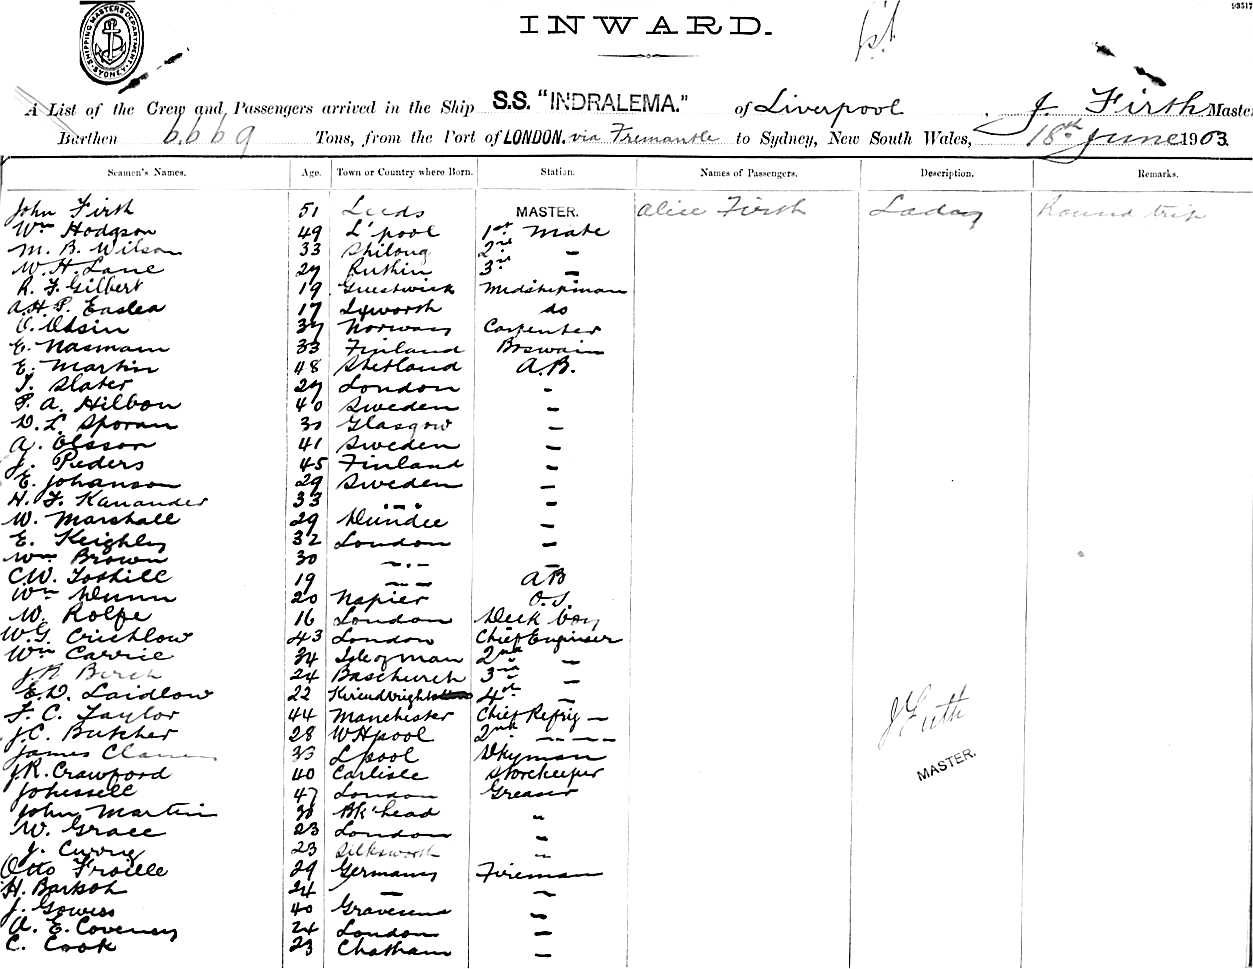 93517
INWARD.
SHIPPING MASTERS DEPARTMENT SYDNEY
A List of the Crew and Passengers arrived in the Ship S.S. "INDRALEMA." of Liverpool, J. Firth Master
Burthen 6669 Tons, from the Port of LONDON. via Fremantle to Sydney, New South Wales, 18th June 1903
Seamen's Names. Age. Town or Country where Born. Station. Names of Passengers. Description. Remarks.
John Firth 51 Leeds MASTER. Alice Firth Round trip
Wm Hodgson 49 L'pool 1st Mate
M. B. Wilson 33 2nd –
W. H. Lane 27 Ruthin 3rd –
R. F. Gilbert 19 Guestwick Midshipman
A. H. P. 17 Ixworth do
O. 37 Norway Carpenter
E. Nasmam 33 Finland Boswain
E. Martin 48 Shetland A.B.
T. Slater 27 London –
P. A. Hilbon 40 Sweden –
D. L. Sporan 30 Glasgow –
A. Olsson 41 Sweden –
J. Peders 45 Finland –
E. Johanson 29 Sweden –
H. F. Kanander 33 –.– –
W. Marshall 29 Dundee –
E. Keighley 32 London –
Wm Brown 30 –.– –
C.W. Toshill 19 – – AB
Wm Dunn 20 Napier O.S.
W. Rolfe 16 London Deck boy
W. G. Crichlow 43 London Chief Engineer
Wm Carrie 34 Isle of Man 2nd –
J. R. Birch 24 Baschurch 3rd –
E. D. Laidlow 22 4th –
F. C. Taylor 44 Manchester Chief Refrig –
J. C. Butcher 28 W H pool 2nd – – – –
James 33 Lpool Dkyman
J. R. Crawford 40 Carlisle Storekeeper
47 London Greaser
John Martin 38 Bk'head "
W. Grace 23 London "
J. Currie 23 Silksworth "
Otto Froelle 29 Germany Fireman
H. Bartsch 24 – –
J. Gowers 40 Gravesend –
A. E. Coveney 24 London –
C. Cook 23 Chatham –
J Firth
MASTER.